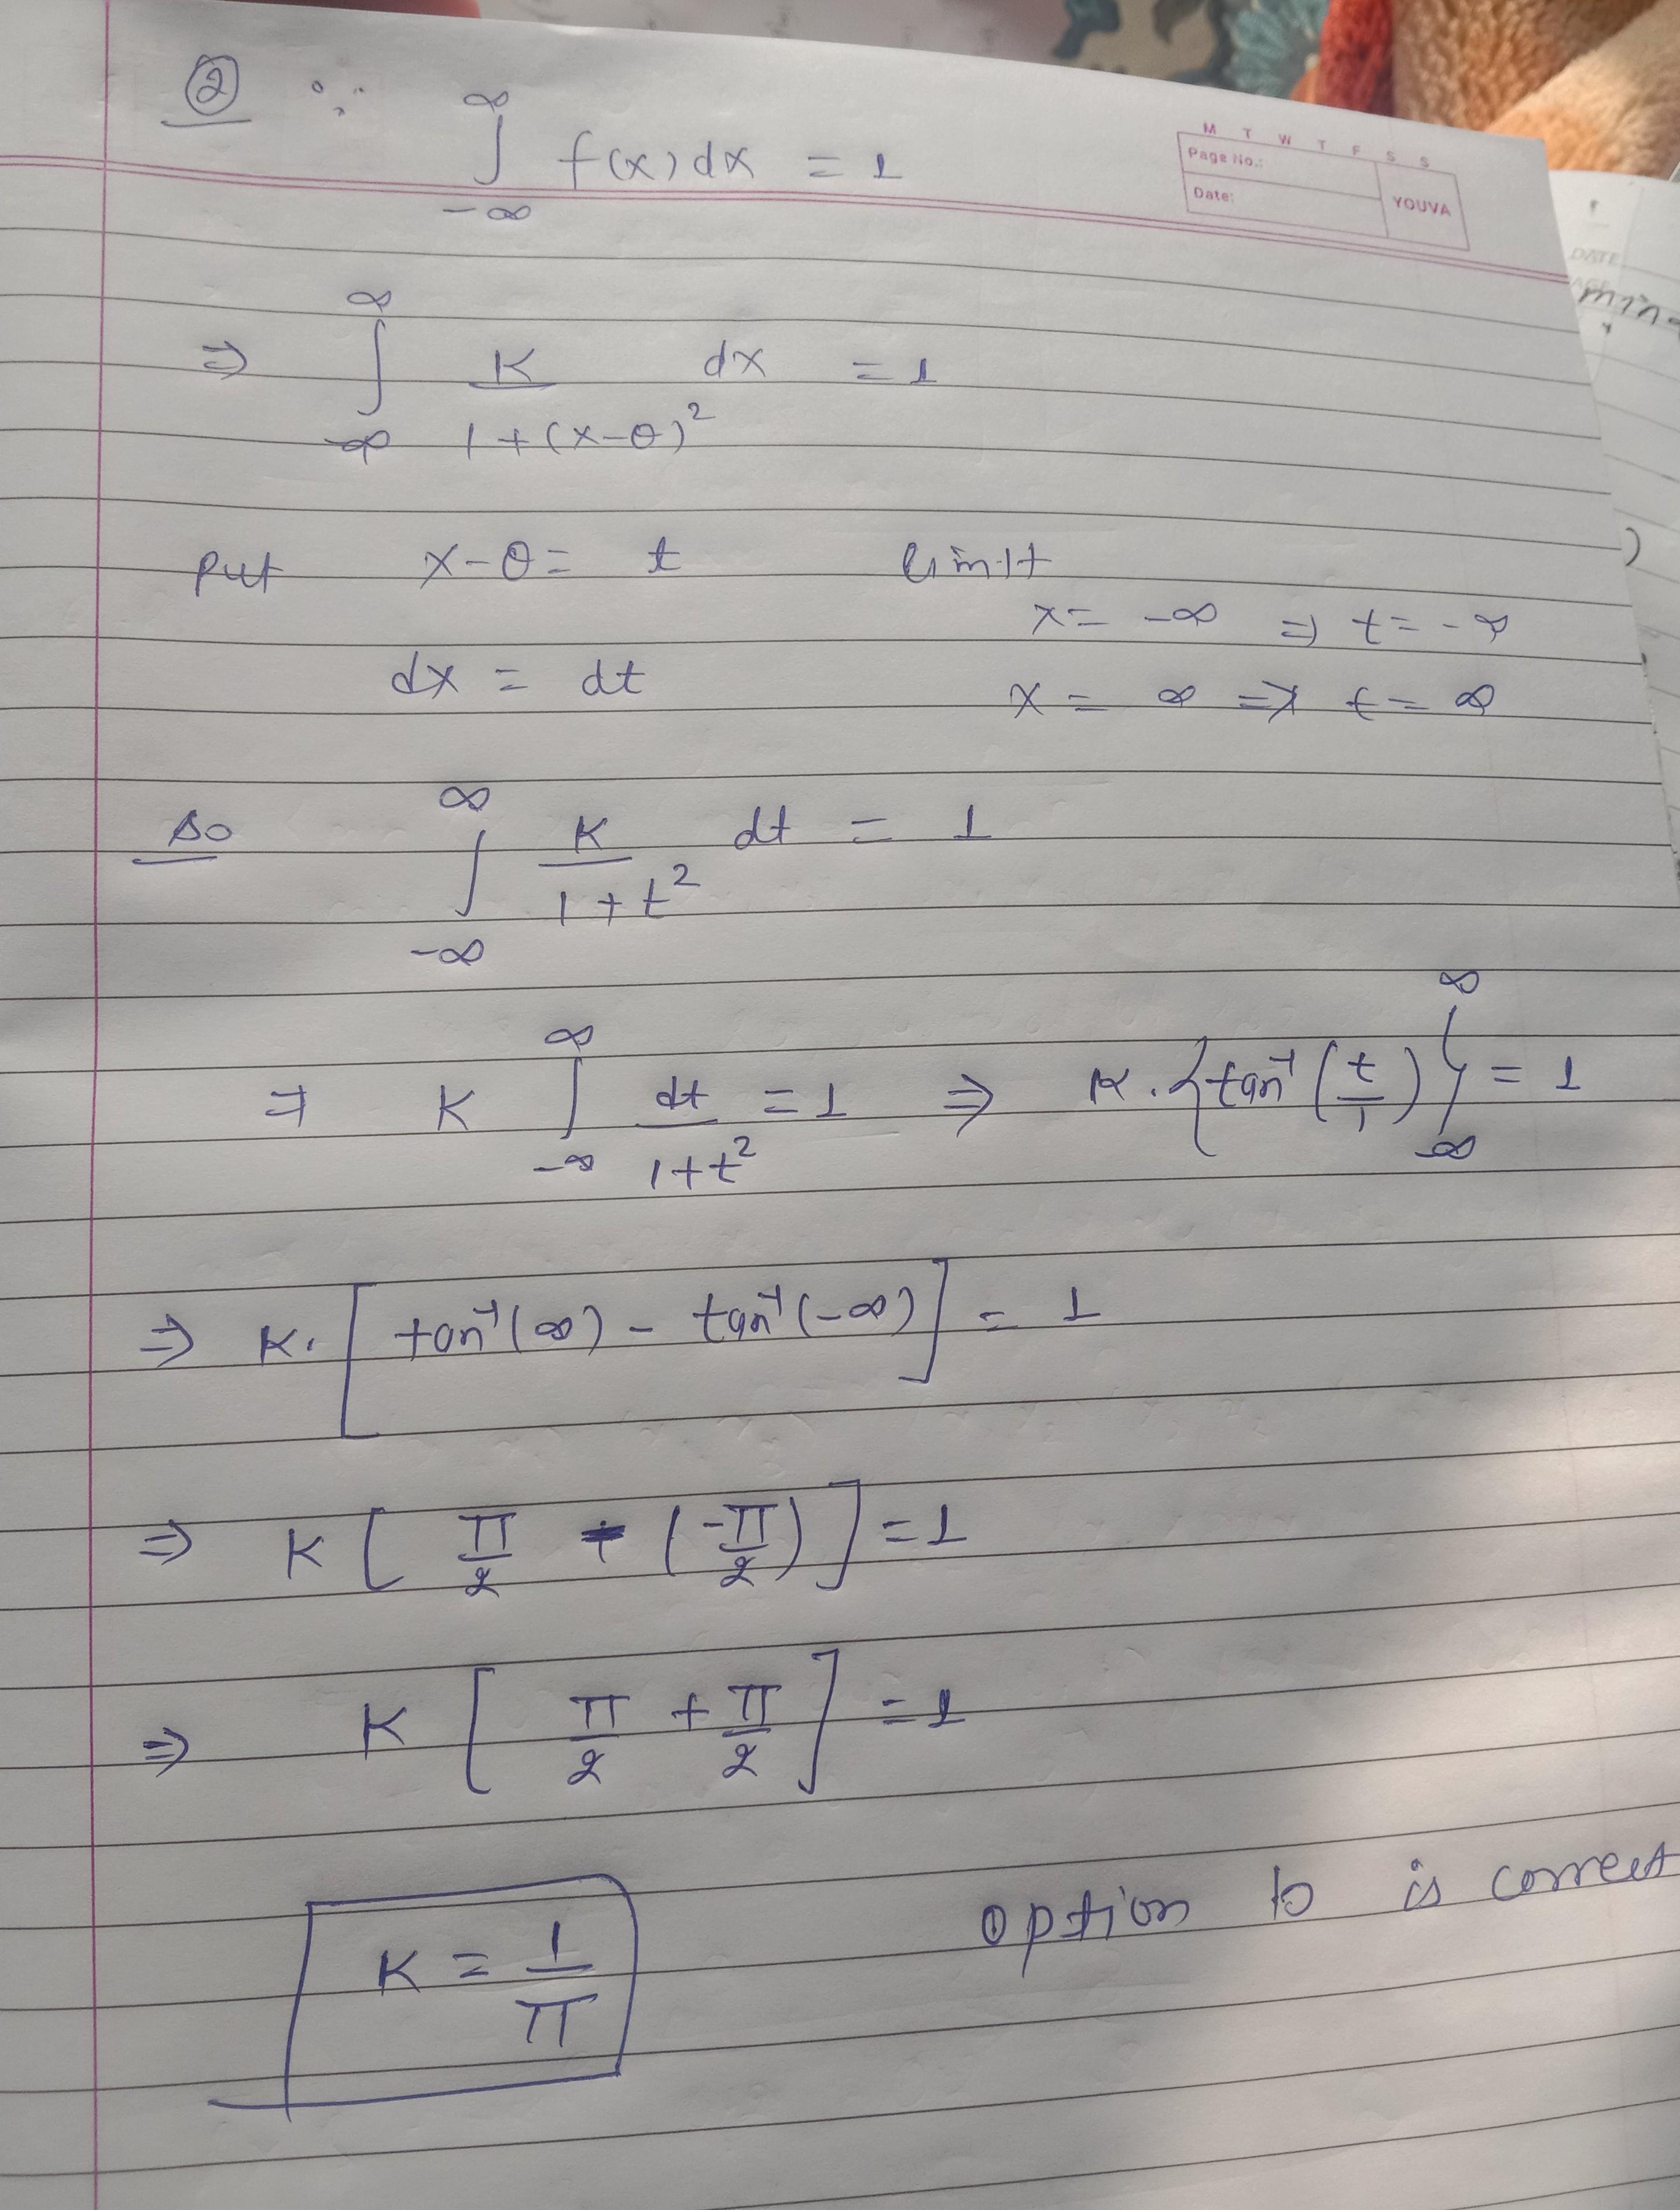 ② ∵ ∫_{-∞}^{∞} f(x) dx = 1
M T W T F S S
Page No.:
Date:
YOUVA
DATE
min
⇒ ∫_{-∞}^{∞} K/(1+(x-θ)²) dx = 1
Put x-θ = t limit
x = -∞ ⇒ t = -∞
dx = dt
x = ∞ ⇒ t = ∞
So ∫_{-∞}^{∞} K/(1+t²) dt = 1
⇒ K ∫_{-∞}^{∞} dt/(1+t²) = 1 ⇒ K.{tan⁻¹(t/1)}_{-∞}^{∞} = 1
⇒ K.[tan⁻¹(∞) - tan⁻¹(-∞)] = 1
⇒ K[π/2 - (-π/2)] = 1
⇒ K[π/2 + π/2] = 1
K = 1/π option b is correct